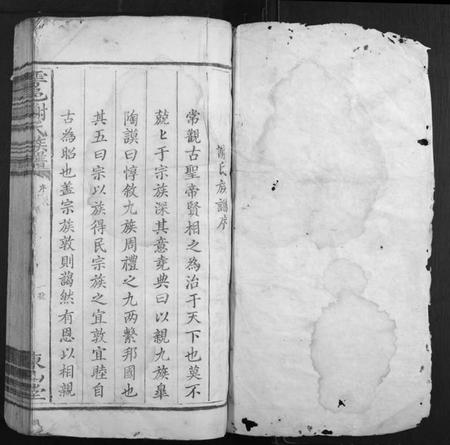 謝氏族譜序
常觀古聖帝賢相之為治于天下也莫不
兢〻于宗族深其意堯典曰以親九族皐
陶謨曰惇敘九族周禮之九兩繫邦國也
其五曰宗以族得民宗族之宜敦宜睦自
古為昭也蓋宗族敦則藹然有恩以相親
邑謝氏族譜
序
東山堂